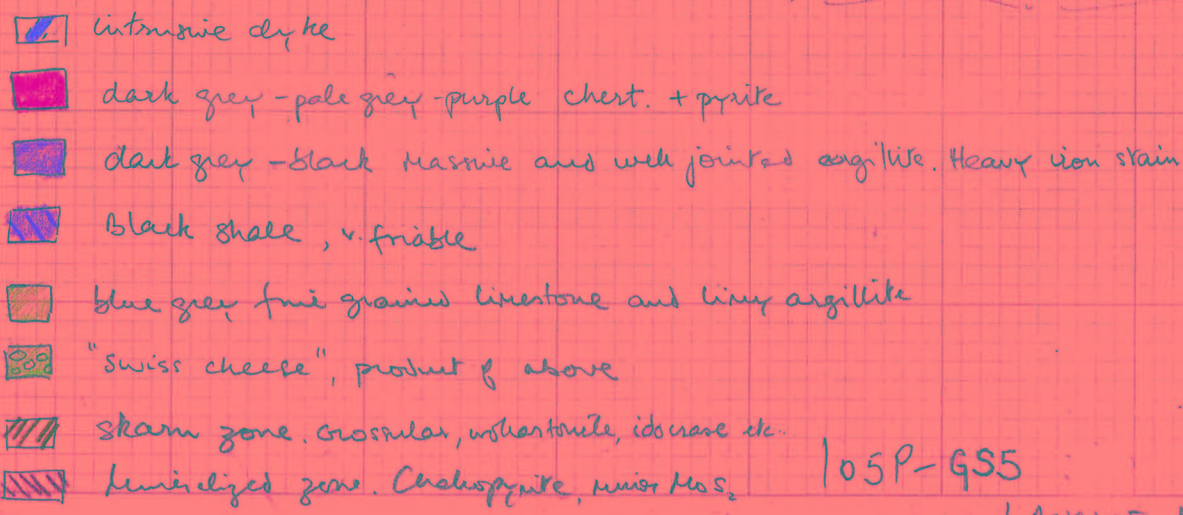 intrusive dyke
dark grey - pale grey - purple chert. + pyrite
dark grey - black massive and well jointed argillite. Heavy iron stain
Black shale, v. friable
blue grey fine grained limestone and limy argillite
"Swiss cheese", product of above
skarn zone. Grossular, wollastonite, idocrase etc.
Mineralized zone. Chalcopyrite, minor MoS₂
105P-GS5